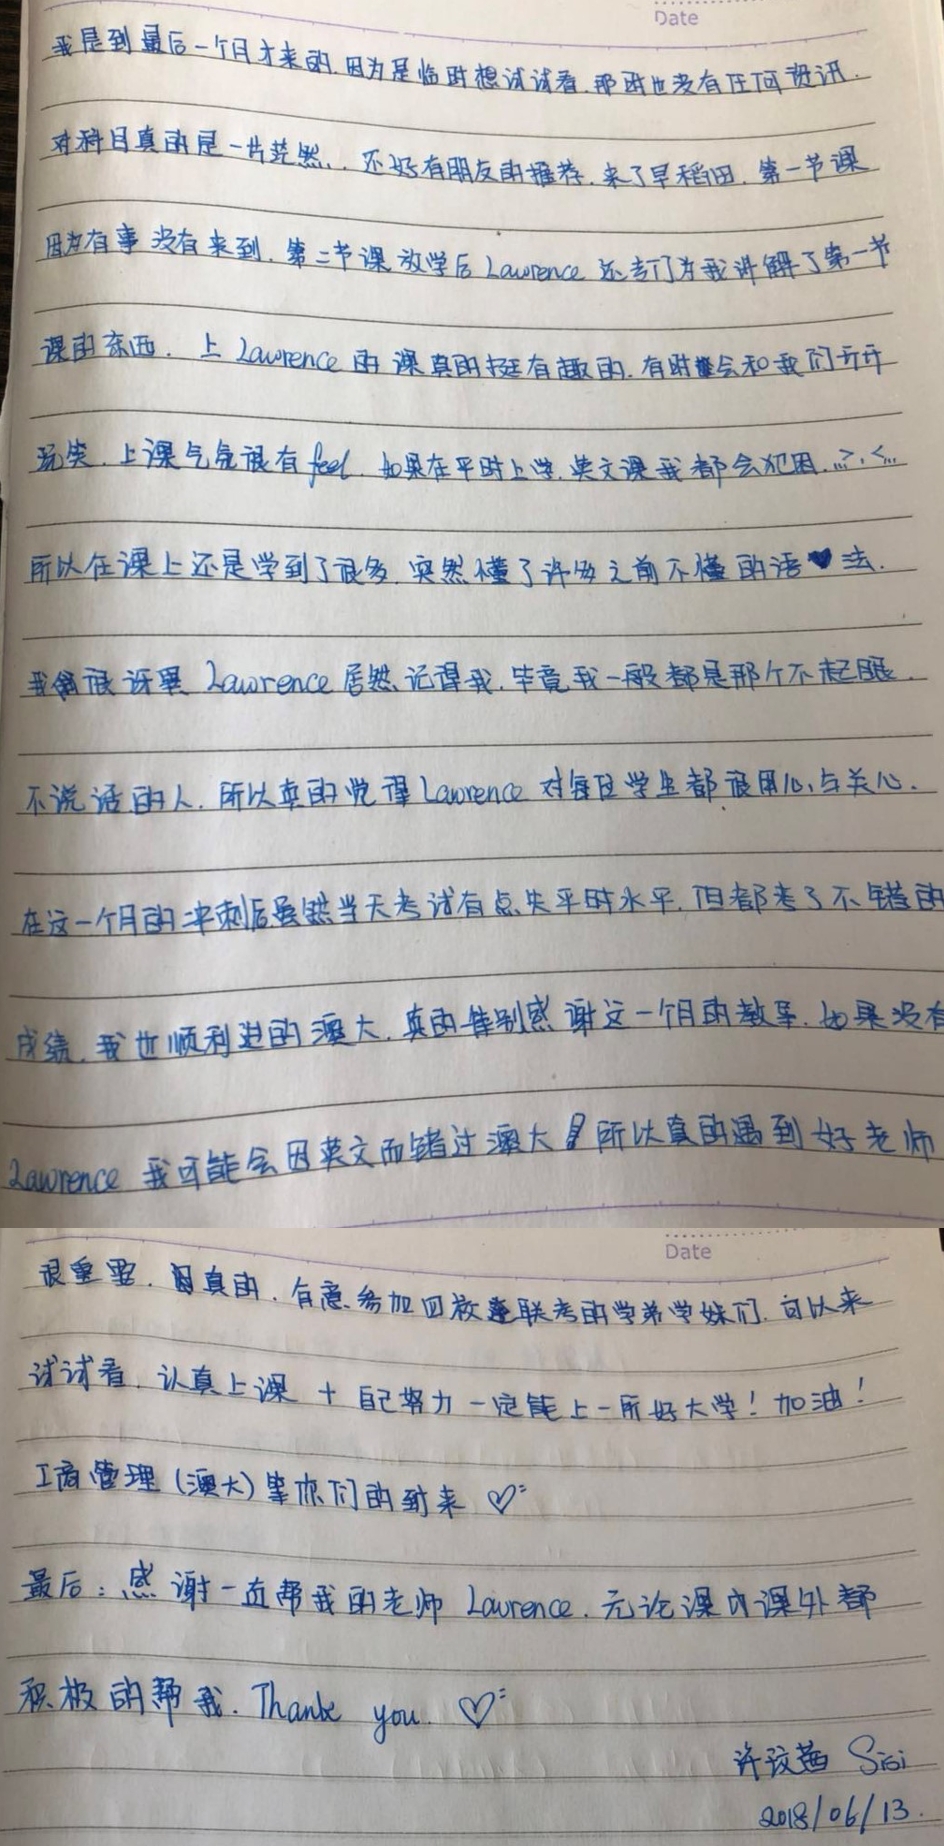 Date
我是到最后一个月才来的.因为是临时想试试看.那时也没有任何资讯.
对科目真的是一片茫然..还好有朋友的推荐.来了早稻田.第一节课
因为有事没有来到.第二节课放学后Lawrence还专门为我讲解了第一节
课的东西.上Lawrence的课真的挺有趣的.有时会和我们开开
玩笑.上课气氛很有feel.如果在平时上学.英文课我都会犯困...>.<...
所以在课上还是学到了很多.突然懂了许多之前不懂的语♥法.
我很讶异Lawrence居然记得我.毕竟我一般都是那个不起眼.
不说话的人.所以真的觉得Lawrence对每位学生都很用心与关心.
在这一个月的冲刺后虽然当天考试有点失平时水平.但都考了不错的
成绩.我也顺利进的澳大.真的特别感谢这一个月的教导.如果没有
Lawrence我可能会因英文而错过澳大 所以真的遇到好老师
Date
很重要.真的.有意参加四校联考的学弟学妹们.可以来
试试看.认真上课+自己努力一定能上一所好大学!加油!
工商管理(澳大)等你们的到来♡
最后:感谢一直帮我的老师Lawrence.无论课内课外都
积极的帮我.Thank you.♡
许玟茜 Sisi
2018/06/13.